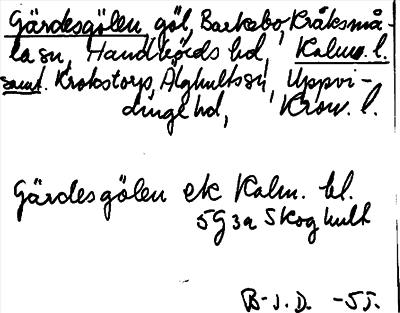 Gärdesgölen, göl, Barkebo, Kråksmå-
la sn, Handbörds hd, Kalm. l.
samt. Krokstorp, Älghults sn, Uppvi-
dinge hd, Kron. l.
Gärdesgölen ek Kalm. bl.
5G3a Skoghult
B-J.D. -55.